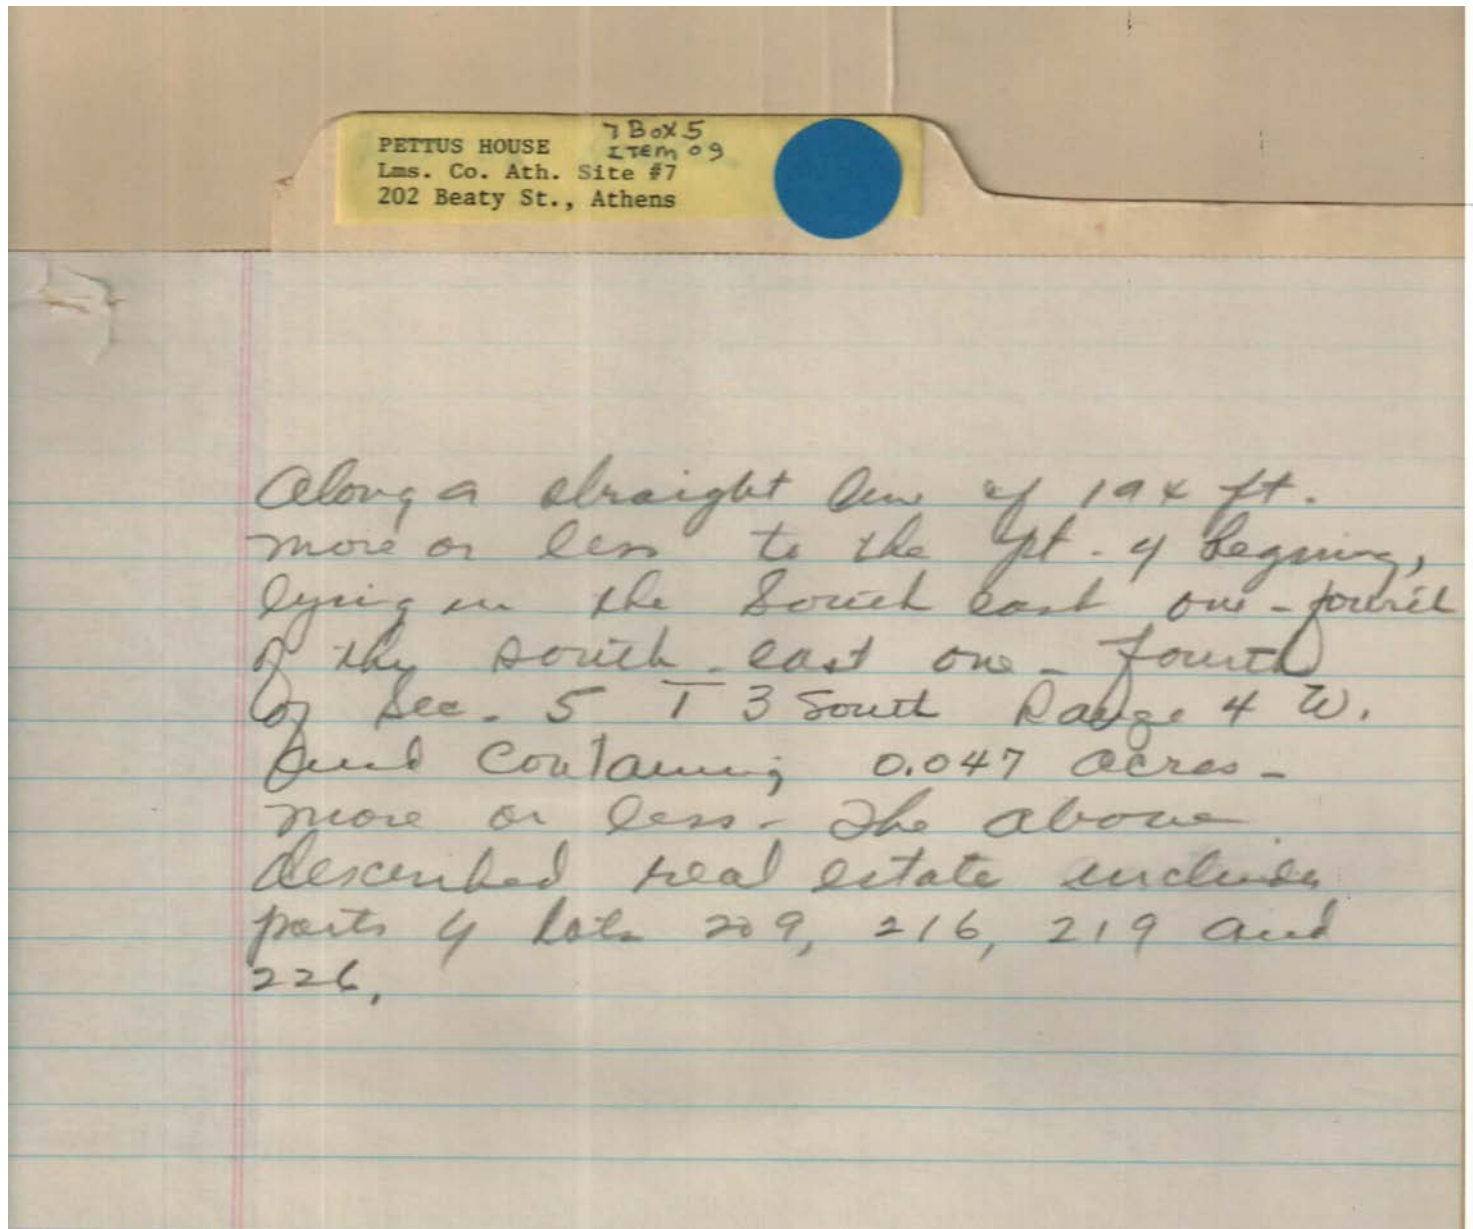 PETTUS HOUSE 7 Box 5
ITEM 09
Lms. Co. Ath. Site #7
202 Beaty St., Athens
Along a straight line of 194 ft.
more or less to the pt. of begining,
lying in the South east one-fourth
of the south-east one-fourth
of Sec. 5 T 3 South Range 4 W.
and containing 0.047 acres-
more or less- The above
described real estate includes
parts of lots 209, 216, 219 and
226.